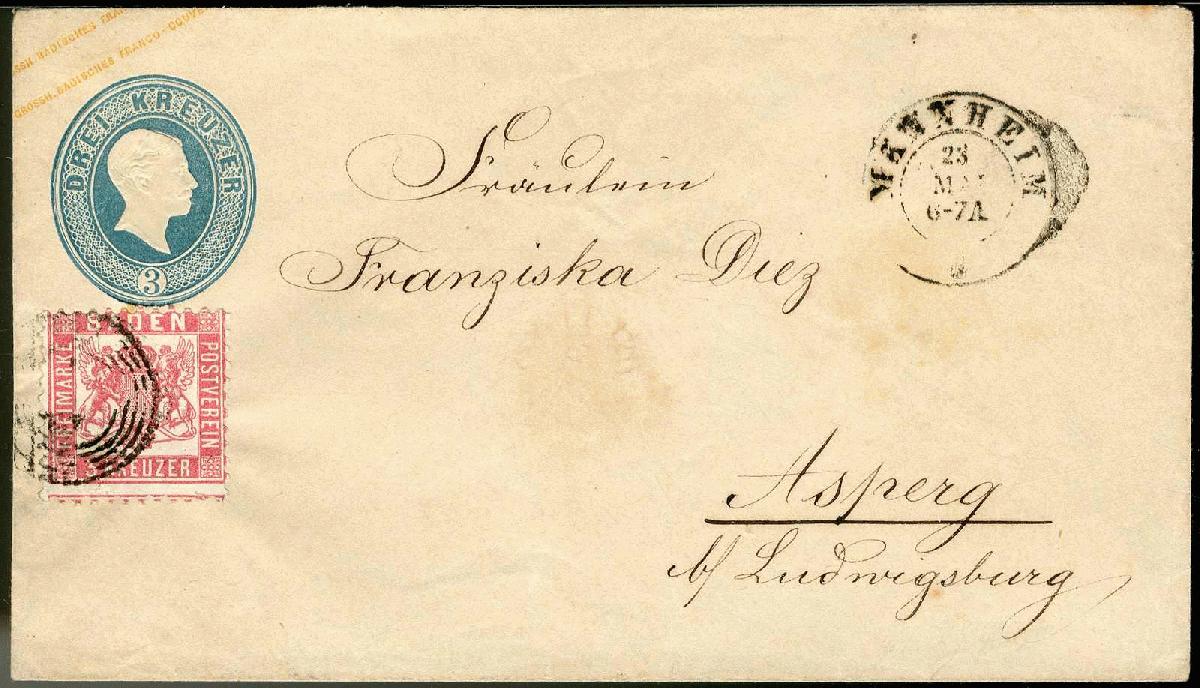 GROSSH. BADISCHES FRANCO-COUVERT
DREI KREUZER
3
BADEN
FREIMARKE
POSTVEREIN
3 KREUZER
MANNHEIM
23
MAI
6-7A
Fräulein
Franziska Diez
Asperg
b/ Ludwigsburg